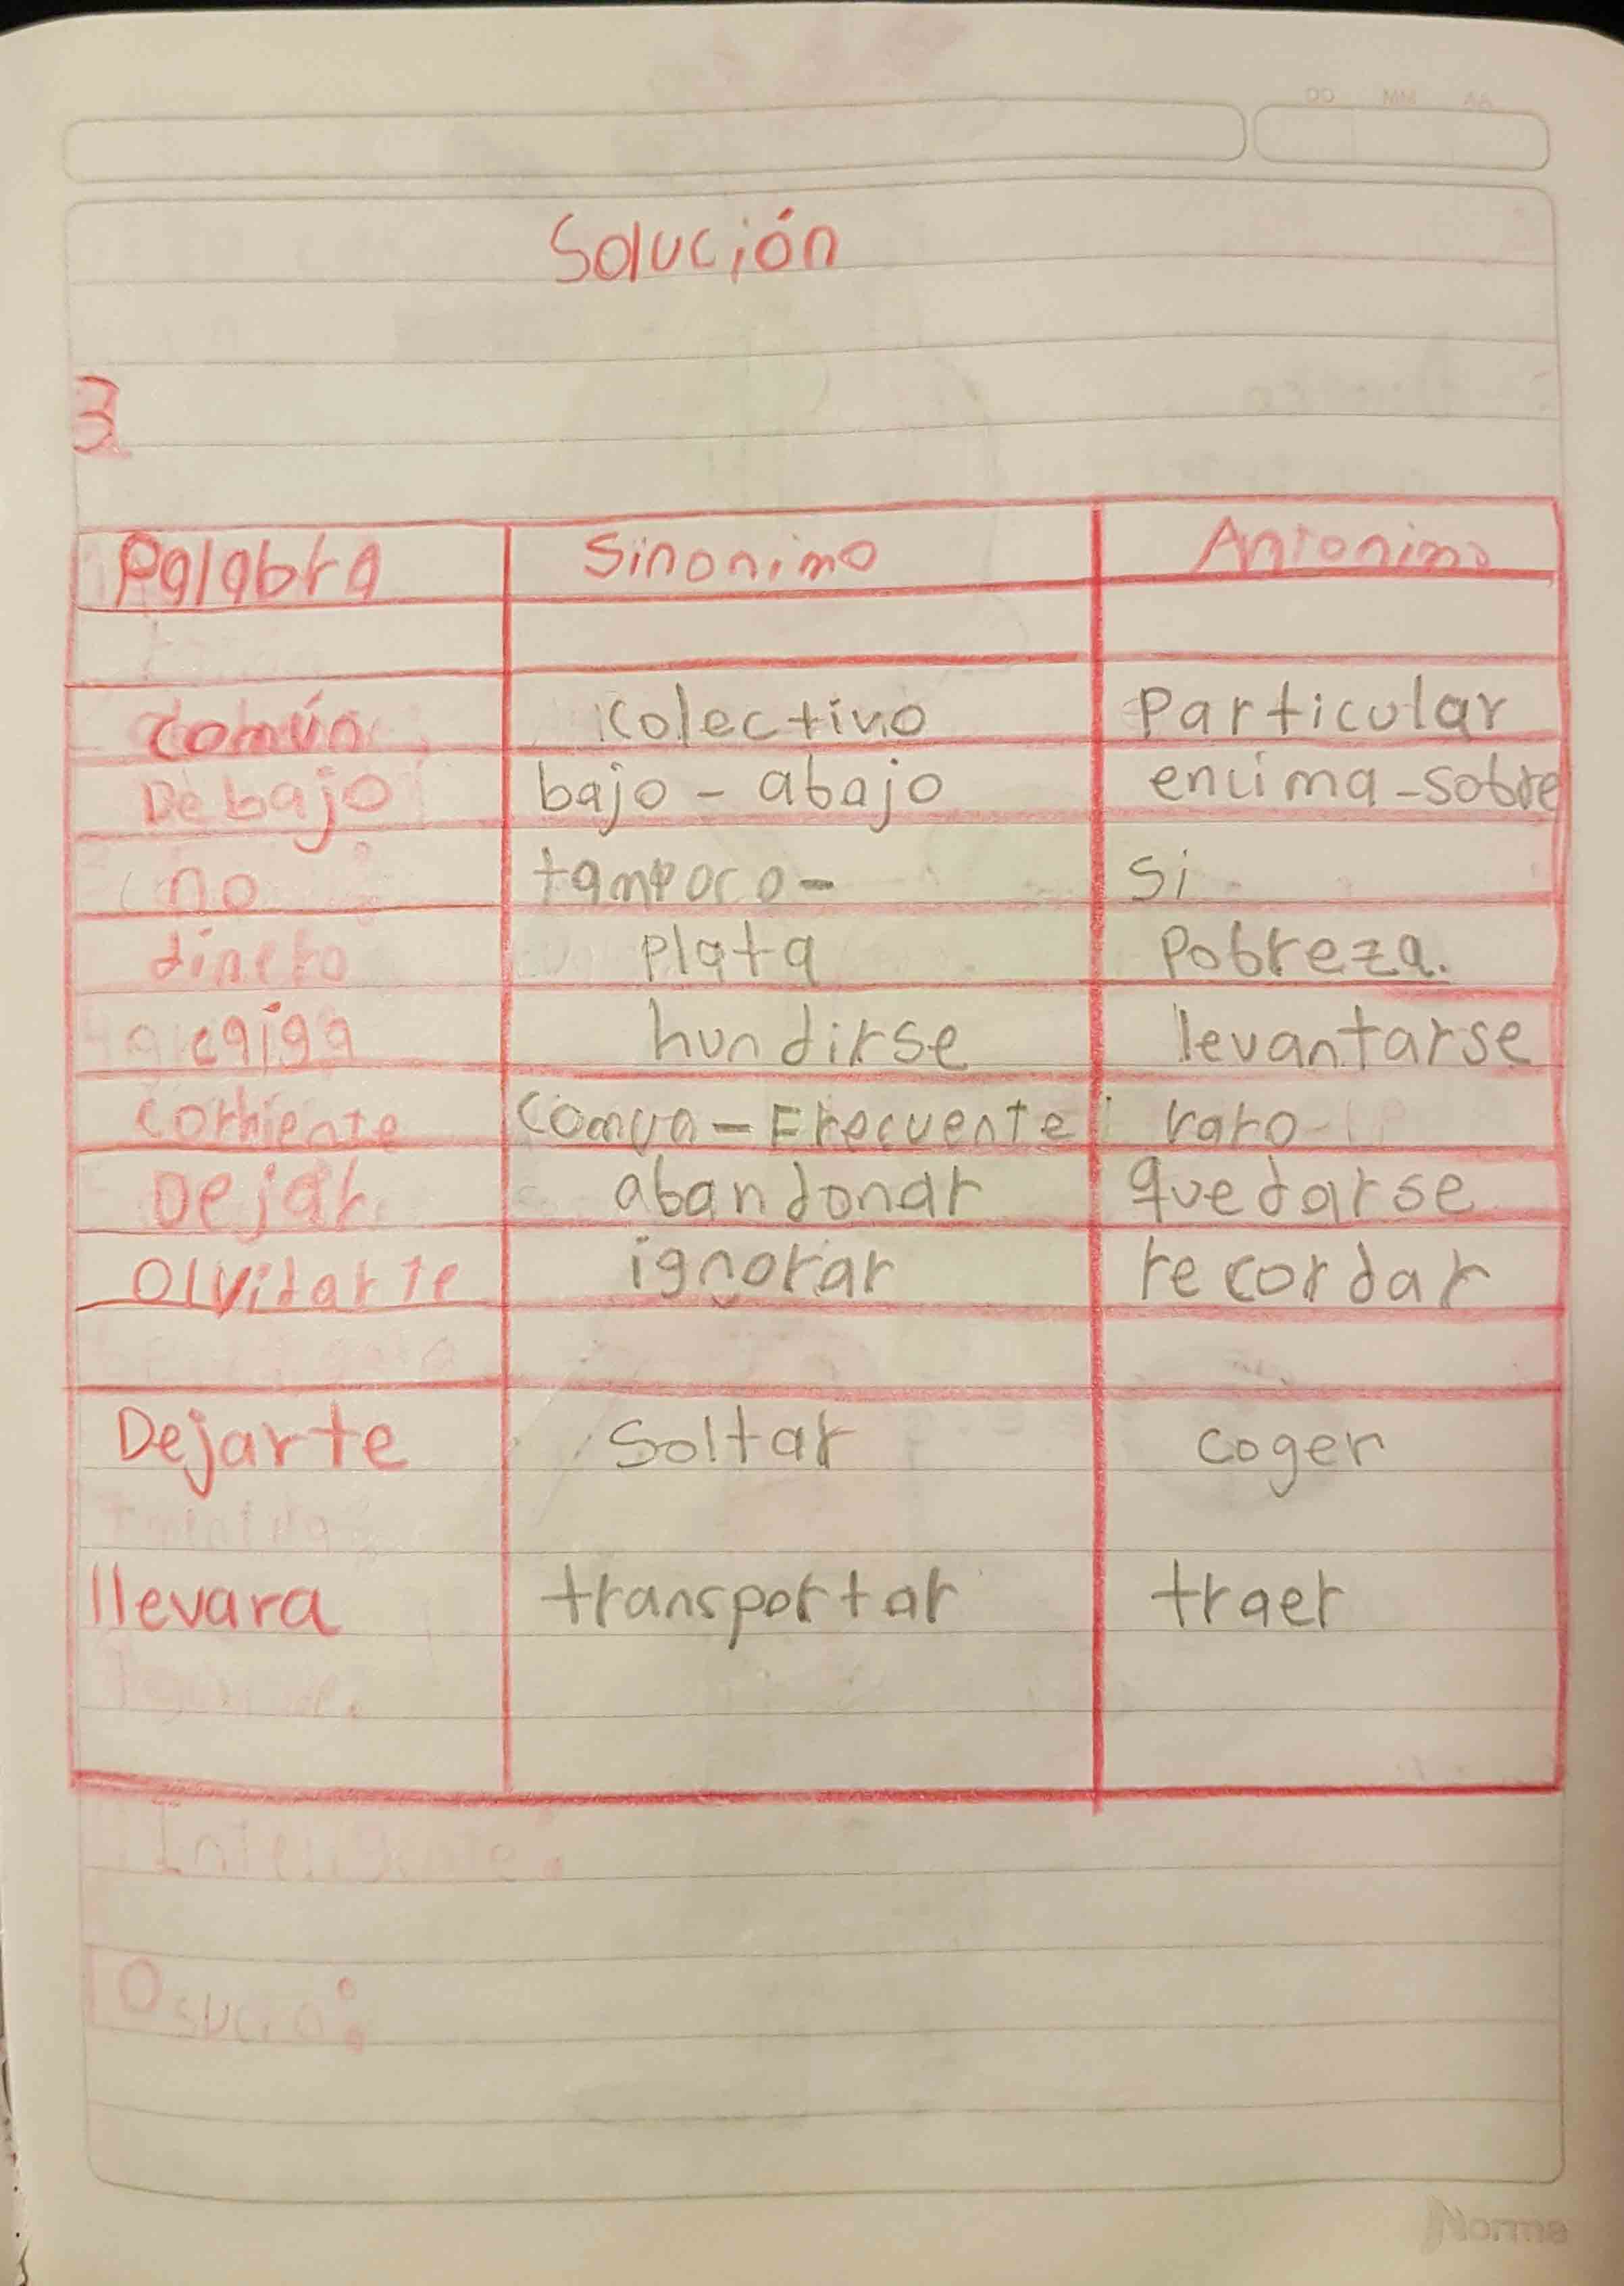 Solución
3
Palabra Sinonimo Antonimo
común Kolectivo Particular
Debajo bajo - abajo encima - sobre
no tampoco - si
dinero Plata Pobreza.
caiga hundirse levantarse
corriente comun - Frecuente raro
Dejar abandonar quedarse
Olvidarte ignorar recordar
Dejarte Soltar coger
llevara transportar traer
Norma